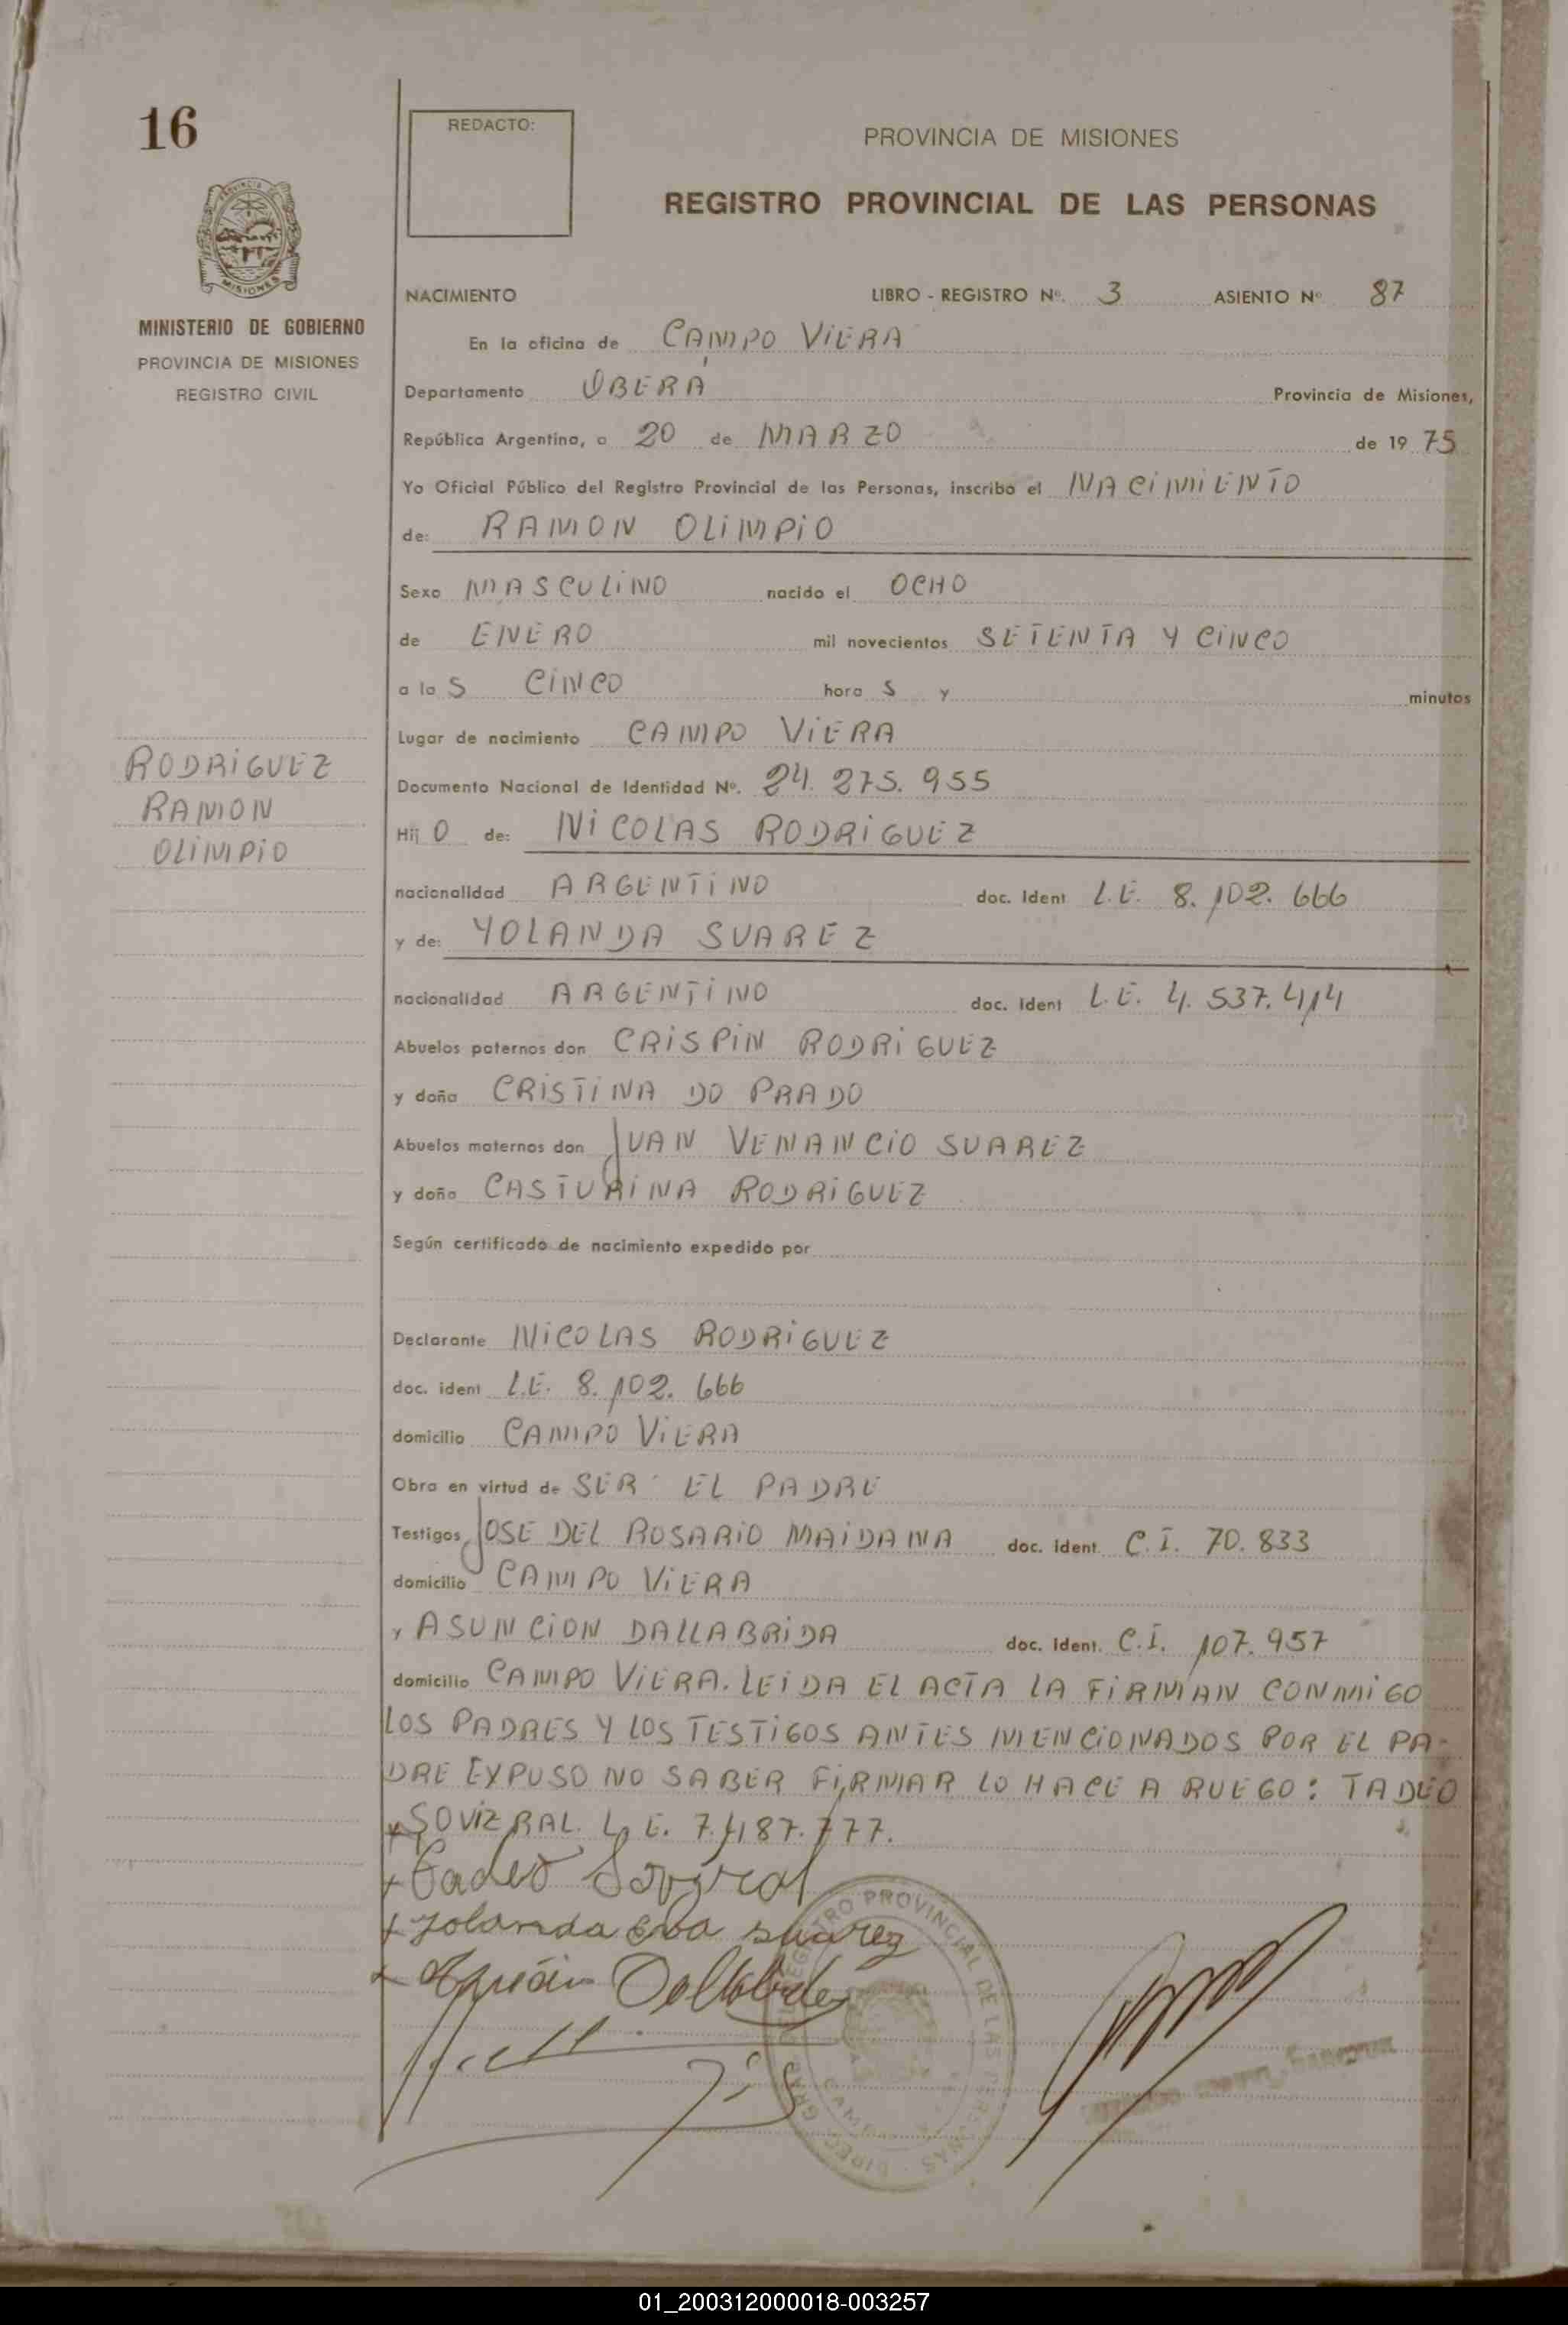 16
REDACTO:
PROVINCIA DE MISIONES
REGISTRO PROVINCIAL DE LAS PERSONAS
MISIONES
MINISTERIO DE GOBIERNO
PROVINCIA DE MISIONES
REGISTRO CIVIL
NACIMIENTO LIBRO - REGISTRO Nº. 3 ASIENTO Nº 87
En la oficina de CAMPO VIERA
Departamento OBERÁ Provincia de Misiones,
República Argentina, a 20 de MARZO de 19 75
Yo Oficial Público del Registro Provincial de las Personas, inscribo el NACIMIENTO
de: RAMON OLIMPIO
Sexo MASCULINO nacido el OCHO
de ENERO mil novecientos SETENTA Y CINCO
a la S CINCO hora S y minutos
Lugar de nacimiento CAMPO VIERA
Documento Nacional de Identidad Nº. 24.275.955
RODRIGUEZ
RAMON
OLIMPIO
Hij O de: NICOLAS RODRIGUEZ
nacionalidad ARGENTINO doc. Ident L.E. 8.102.666
y de: YOLANDA SUAREZ
nacionalidad ARGENTINO doc. Ident L.E. 4.537.414
Abuelos paternos don CRISPIN RODRIGUEZ
y doña CRISTINA DO PRADO
Abuelos maternos don JUAN VENANCIO SUAREZ
y doña CASTURINA RODRIGUEZ
Según certificado de nacimiento expedido por
Declarante NICOLAS RODRIGUEZ
doc. ident L.E. 8.102.666
domicilio CAMPO VIERA
Obra en virtud de SER EL PADRE
Testigos JOSE DEL ROSARIO MAIDANA doc. ident. C.I. 70.833
domicilio CAMPO VIERA
y ASUNCION DALLABRIDA doc. ident. C.I. 107.957
domicilio CAMPO VIERA. LEIDA EL ACTA LA FIRMAN CONMIGO
LOS PADRES Y LOS TESTIGOS ANTES MENCIONADOS POR EL PA-
DRE EXPUSO NO SABER FIRMAR LO HACE A RUEGO: TADEO
SOVIZRAL. L.E. 7.487.777.
+ Tadeo
+ Yolanda Eva Suarez
REGISTRO PROVINCIAL DE LAS PERSONAS
01_200312000018-003257